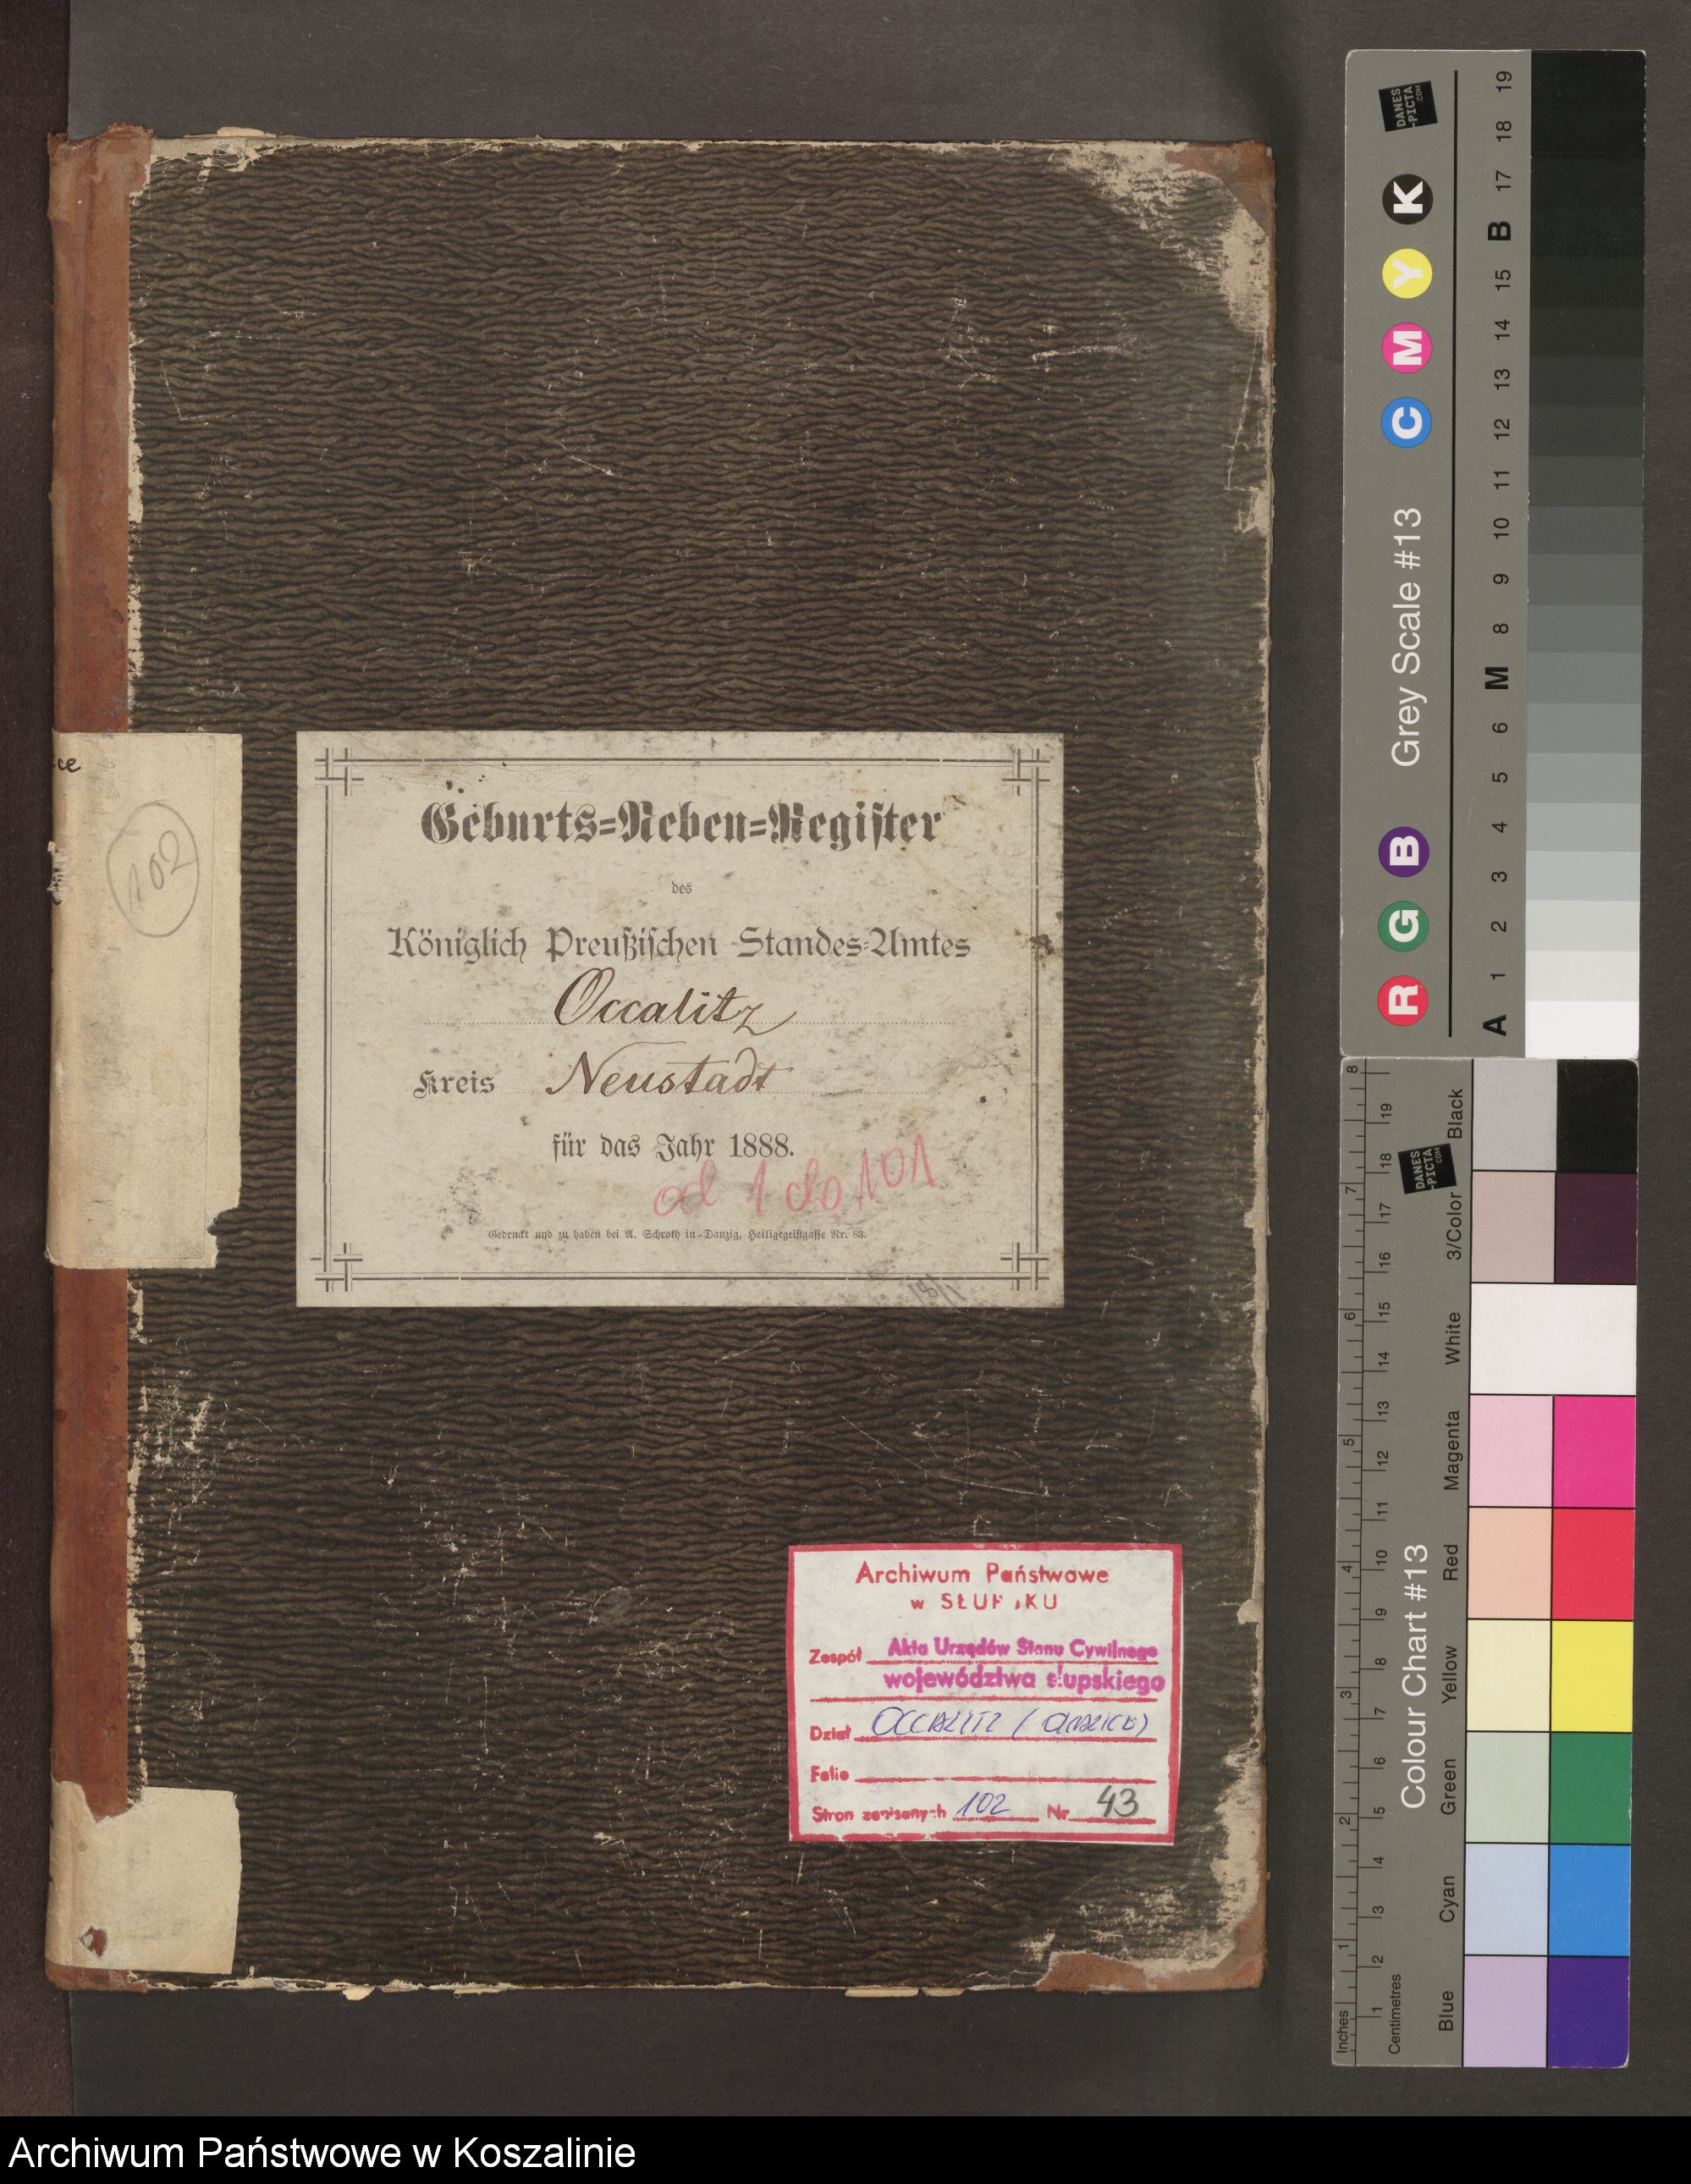 ce
102
Geburts=Neben=Register
des
Königlich Preußischen Standes=Amtes
Occalitz
Kreis Neustadt
für das Jahr 1888.
od 1 do 101
Gedruckt und zu haben bei A. Schroth in Danzig, Heiligegeistgasse Nr. 83.
Archiwum Państwowe
w SŁUPSKU
Zespół Akta Urzędów Stanu Cywilnego
województwa słupskiego
Dział OCCALITZ
Folio
Stron zapisanych 102 Nr 43
DANES
-PICTA
.COM
R G B Grey Scale #13 C M Y K
A 1 2 3 4 5 6 M 8 9 10 11 12 13 14 15 B 17 18 19
Inches 1 2 3 4 5 6 7 8
Centimetres 1 2 3 4 5 6 7 8 9 10 11 12 13 14 15 16 17 18 19
Colour Chart #13
DANES
-PICTA
.COM
Blue Cyan Green Yellow Red Magenta White 3/Color Black
Archiwum Państwowe w Koszalinie